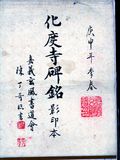 庚申年季春
化度寺碑銘影印本
嘉義玄風書道會
陳丁奇